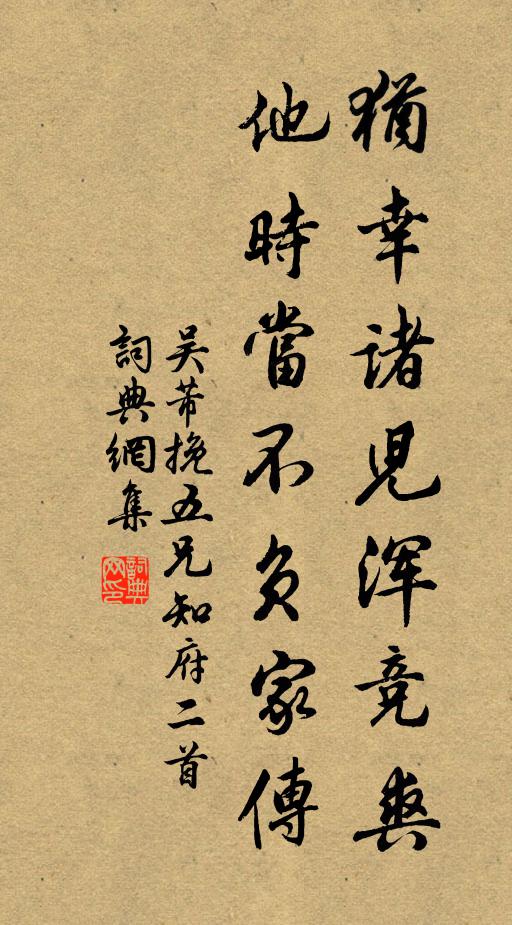 猶幸諸兒渾竞爽
他時當不負家傳
吴芾挽五兄知府二首
詞典網集
詞典网印